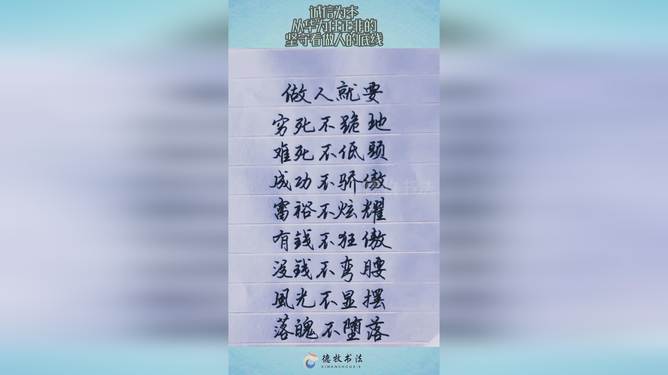 诚信为本
从华为任正非的
坚守看做人的底线
做人就要
穷死不跪地
难死不低头
成功不骄傲
富裕不炫耀
有钱不狂傲
没钱不弯腰
風光不显摆
落魄不堕落
德牧书法